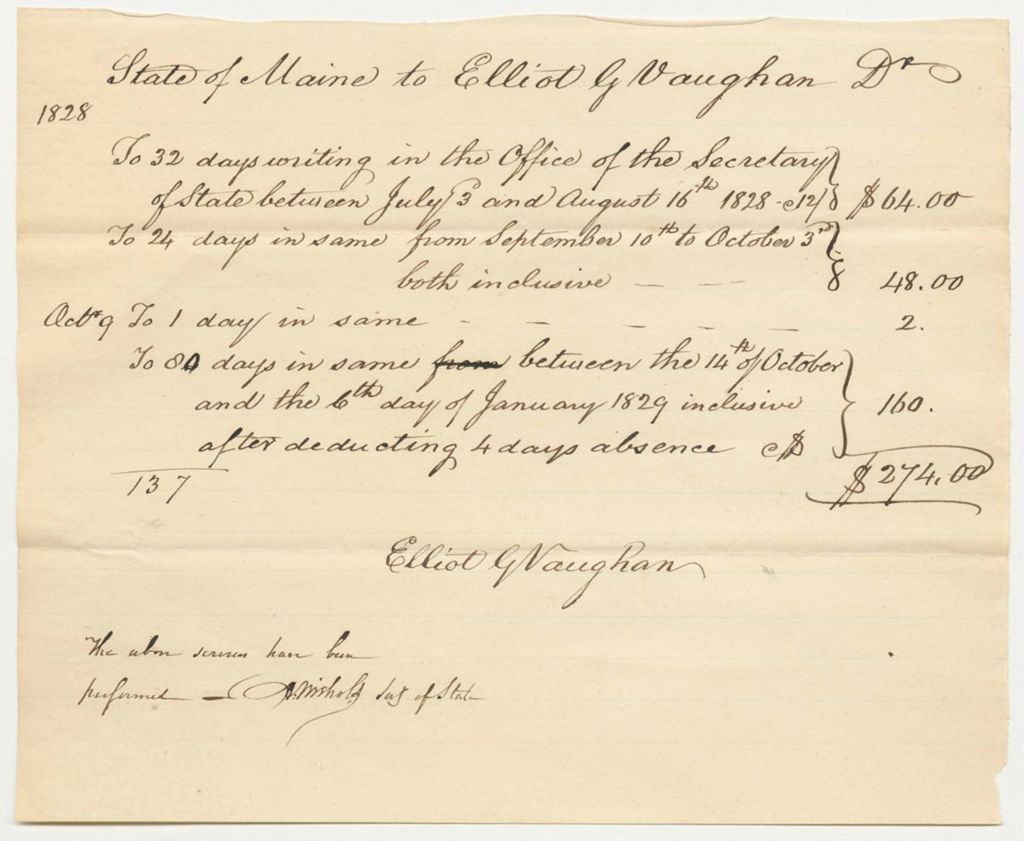 State of Maine to Elliot G Vaughan Dr
1828
To 32 days writing in the Office of the Secretary
of State between July 3 and August 16th 1828 $64.00
To 24 days in same from September 10th to October 3rd
both inclusive - - - 48.00
Octr 9 To 1 day in same - - - - - 2.
To 80 days in same from between the 14th of October
and the 6th day of January 1829 inclusive 160.
after deducting 4 days absence
137 $274.00
Elliot G Vaughan
The above services have been
performed — A. Nichols Secy of State